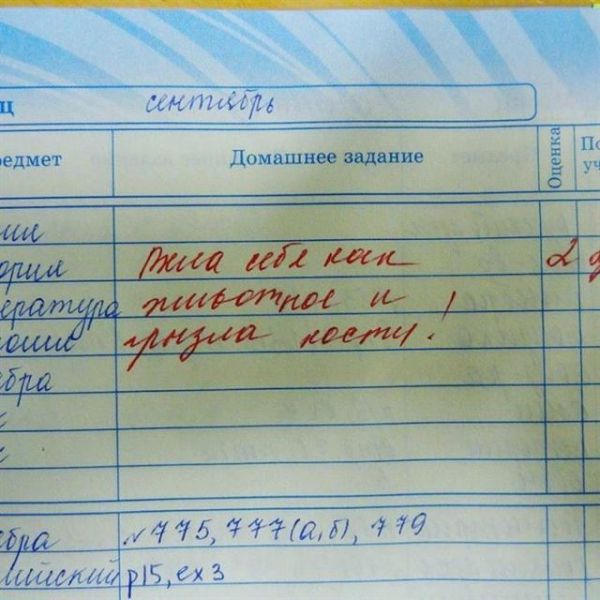 ц сентябрь
редмет Домашнее задание Оценка По уч
ория Вела себя как 2
ература животное и
грызла кости!
ебра
ебра №775, 777(а,б), 779
лийский р15, ex3